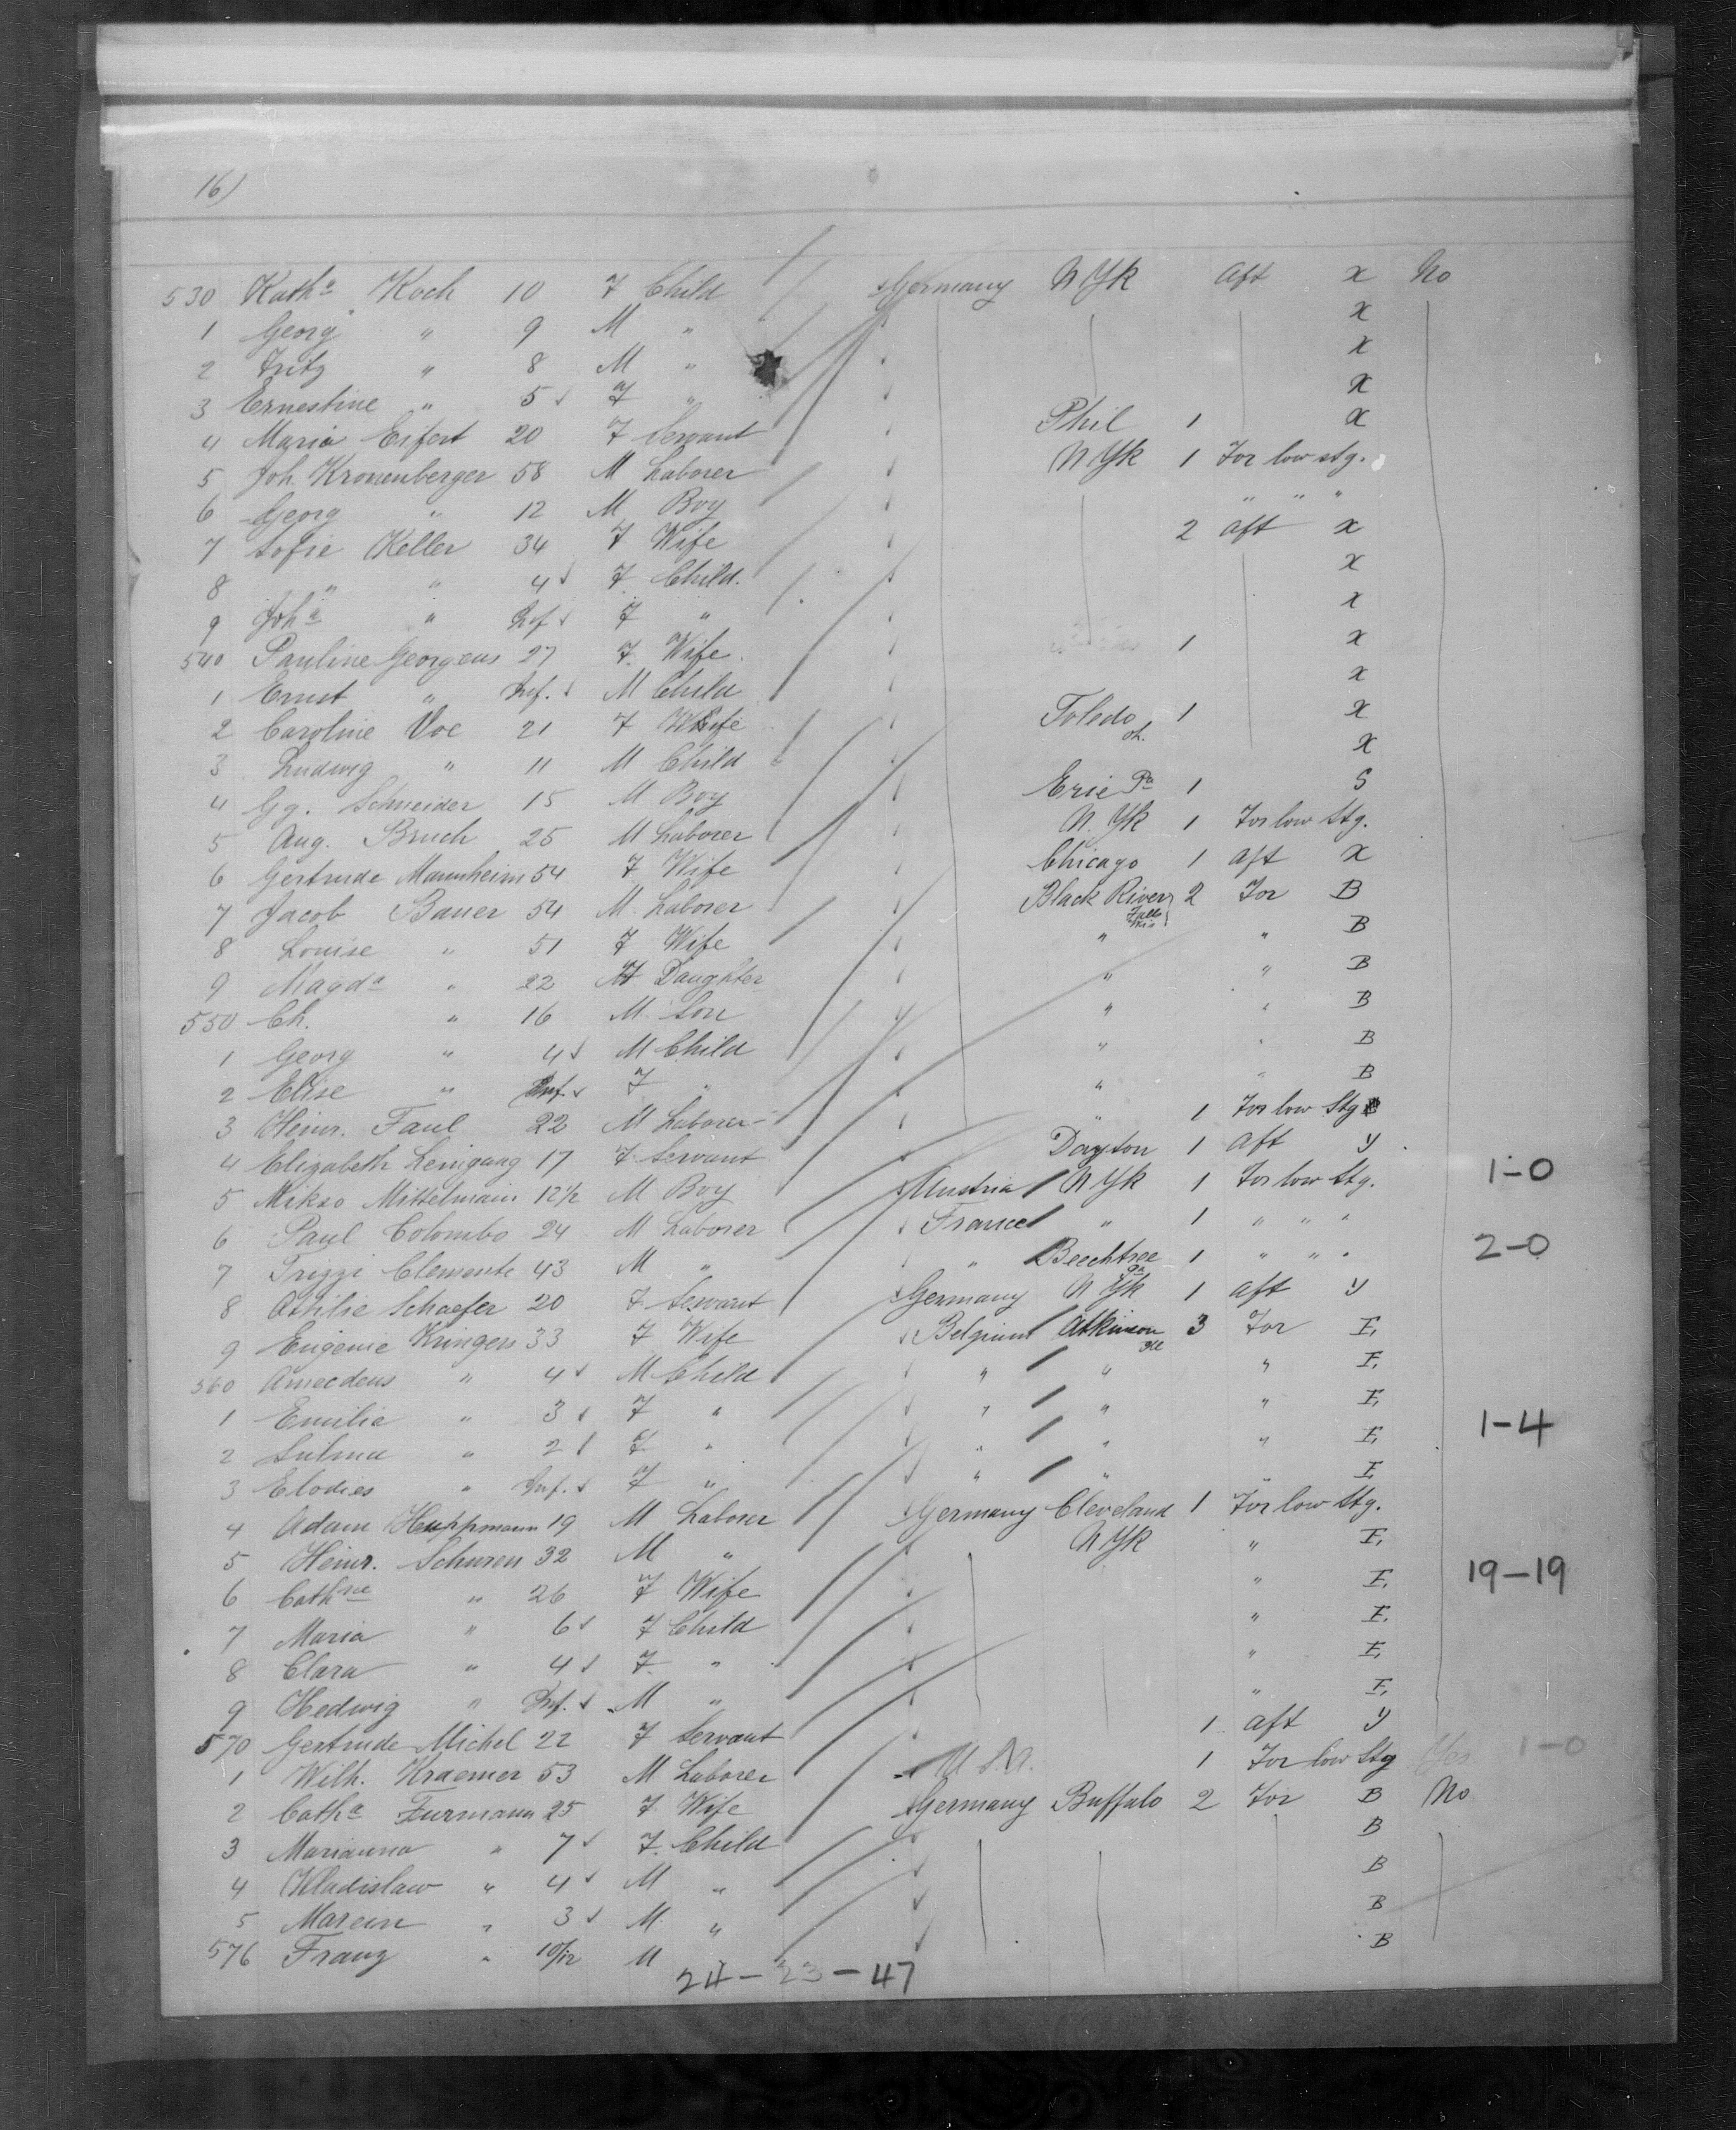 16)
530 Kath<sup>a</sup> Koch 10 F Child Germany N Yk Aft X No
1 Georg " 9 M " X
2 Fritz " 8 M " X
3 Ernestine " 5 F " X
4 Maria Eifert 20 F Servant Phil 1 X
5 Joh. Kronenberger 58 M Laborer N Yk 1 For low stg.
6 Georg " 12 M Boy " " "
7 Sofie Keller 34 F Wife 2 aft X
8 " " 4 F Child. X
9 Joh<sup>a</sup> " Inf F " X
540 Pauline Georgens 27 F. Wife 1 X
1 Ernst " Inf. M Child X
2 Caroline Voc 21 F Wife Toledo oh. 1 X
3 Ludwig " 11 M Child X
4 Gg. Schneider 15 M Boy Erie Pa 1 S
5 Aug. Bruch 25 M Laborer N. Yk 1 For low Stg.
6 Gertrude Mannheim 54 F Wife Chicago 1 aft X
7 Jacob Bauer 54 M. Laborer Black River Falls Wis 2 For B
8 Louise " 51 F Wife " " B
9 Magd<sup>a</sup> " 22 Daughter " " B
550 Ch. " 16 M. Son " " B
1 Georg " 4 M Child " " B
2 Elise " Inf. F " " " B
3 Heinr. Faul 22 M Laborer " 1 For low Stg
4 Elizabeth Leingang 17 F Servant Dayton 1 aft y
5 Mikso Mittelmain 12½ M Boy Austria N Yk 1 For low Stg. 1-0
6 Paul Colombo 24 M Laborer France " 1 " " "
7 Triggi Clemente 43 M " " Beechtree Pa 1 " " " 2-0
8 Ottilie Schaefer 20 F Servant Germany N Yk 1 aft y
9 Eugenie Kringers 33 F Wife Belgium Atkinson Ill 3 For E.
560 Amecdeus " 4 M Child " " " E.
1 Emilie " 3 F " " " " E.
2 Sulma " 2 F " " " " E. 1-4
3 Elodies " Inf. F " " " " E
4 Adam Heuppmann 19 M Laborer Germany Cleveland 1 For low Stg.
5 Heinr. Schuren 32 M " N Yk " E.
6 Cath<sup>ne</sup> " 26 F Wife " E. 19-19
7 Maria " 6 F Child " E.
8 Clara " 4 F. " " E.
9 Hedwig " Inf. M " " E.
570 Gertrude Michel 22 F Servant 1 aft y
1 Wilh. Kraemer 53 M Laborer U.S.A. 1 For low Stg Yes 1-0
2 Cath<sup>a</sup> Furmann 25 F Wife Germany Buffalo 2 For B No
3 Marianna " 7 F. Child B
4 Wladislaw " 4 M " B
5 Marcin " 3 M. " B
576 Franz " 10/12 M B
24-23-47